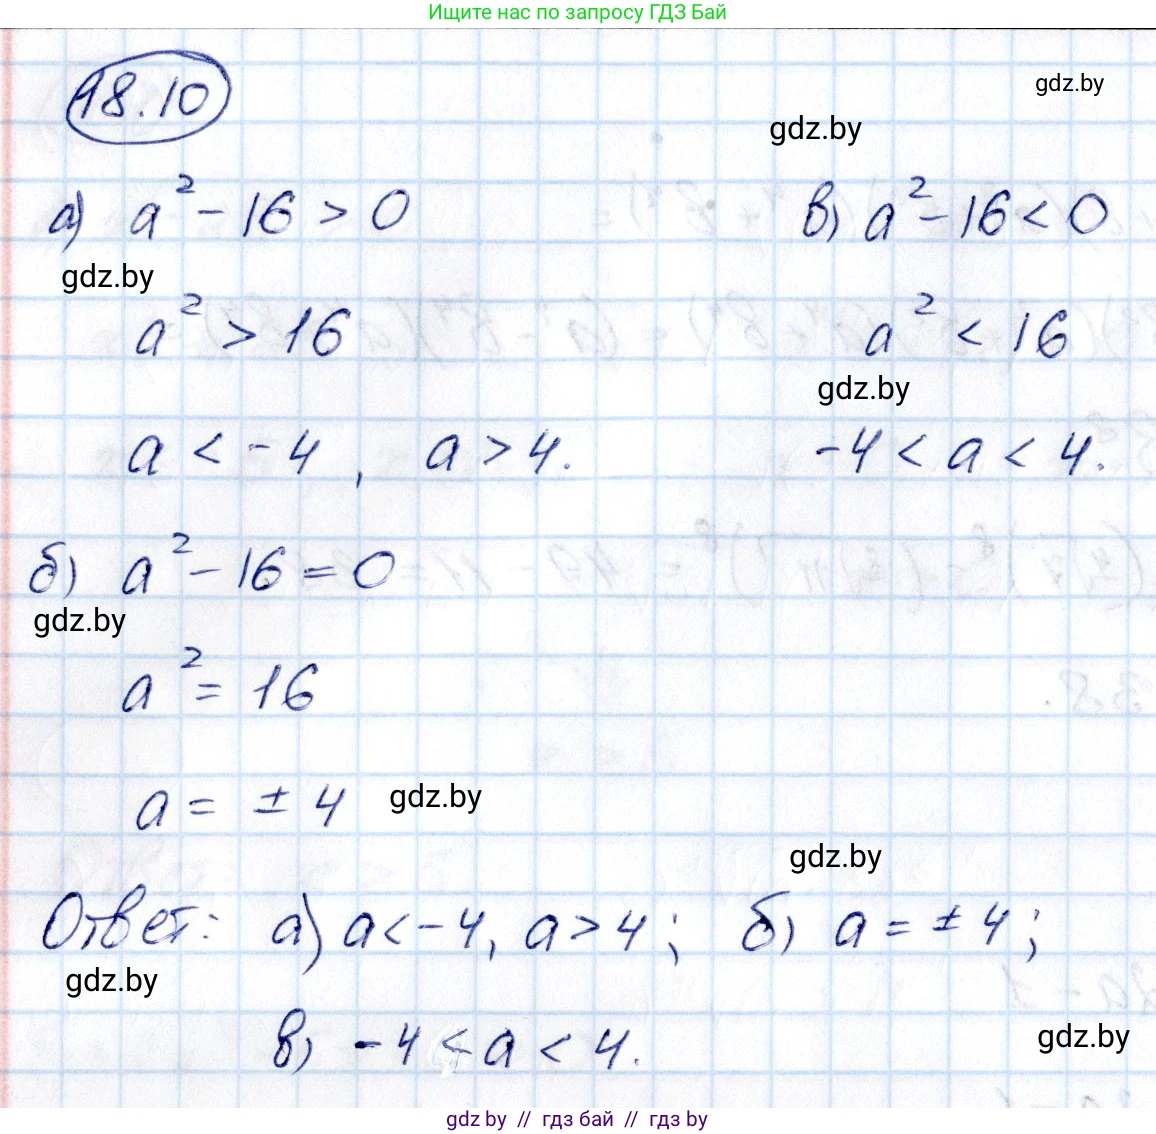 Ищите нас по запросу ГДЗ Бай
gdz.by
18.10
gdz.by
а) a² - 16 > 0
gdz.by
a² > 16
a < -4, a > 4.
в) a² - 16 < 0
a² < 16
gdz.by
-4 < a < 4.
б) a² - 16 = 0
gdz.by
a² = 16
a = ± 4
gdz.by
gdz.by
Ответ: а) a < -4, a > 4; б) a = ± 4;
gdz.by
в) -4 < a < 4.
gdz.by
gdz.by // гдз бай // гдз by